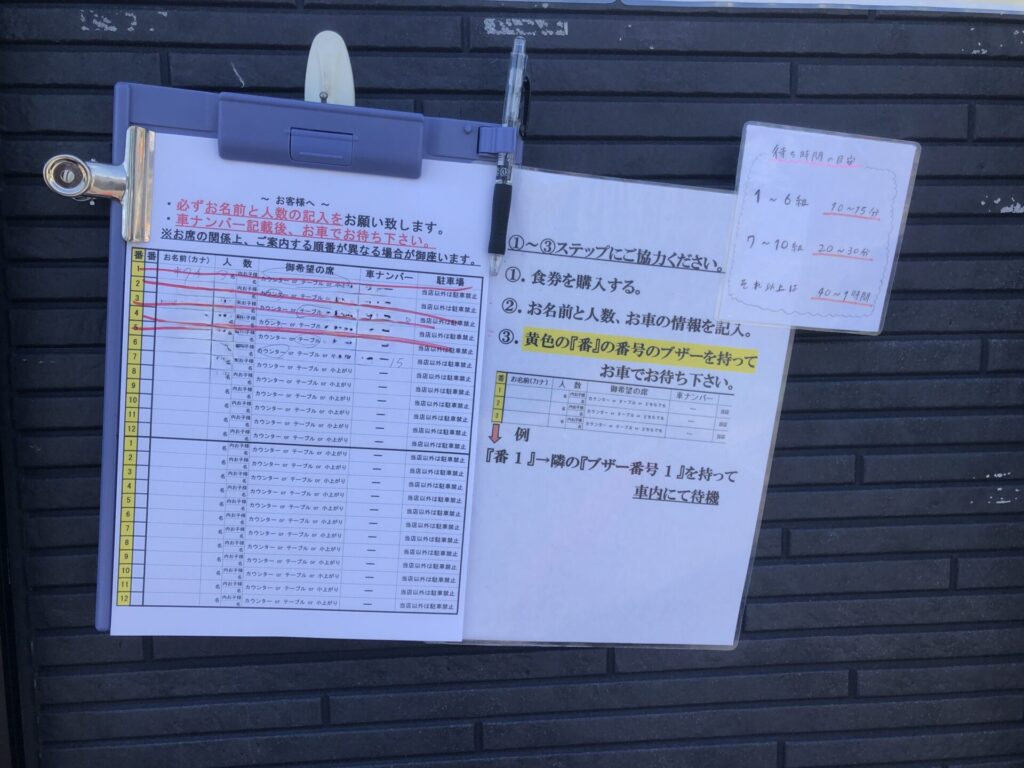 ～ お客様へ ～
・必ずお名前と人数の記入をお願い致します。
・車ナンバー記載後、お車でお待ち下さい。
※お席の関係上、ご案内する順番が異なる場合が御座います。
番 番 お名前(カナ) 人 数 御希望の席 車ナンバー 駐車場
1 名 内お子様 名 カウンター or テーブル or 小上がり 当店以外は駐車禁止
2 名 内お子様 名 カウンター or テーブル or 小上がり 当店以外は駐車禁止
3 名 内お子様 名 カウンター or テーブル or 小上がり 当店以外は駐車禁止
4 名 内お子様 名 カウンター or テーブル or 小上がり 当店以外は駐車禁止
5 名 内お子様 名 カウンター or テーブル or 小上がり 当店以外は駐車禁止
6 名 内お子様 名 カウンター or テーブル or 小上がり 15 当店以外は駐車禁止
7 名 内お子様 名 カウンター or テーブル or 小上がり ー 当店以外は駐車禁止
8 名 内お子様 名 カウンター or テーブル or 小上がり ー 当店以外は駐車禁止
9 名 内お子様 名 カウンター or テーブル or 小上がり ー 当店以外は駐車禁止
10 名 内お子様 名 カウンター or テーブル or 小上がり ー 当店以外は駐車禁止
11 名 内お子様 名 カウンター or テーブル or 小上がり ー 当店以外は駐車禁止
12 名 内お子様 名 カウンター or テーブル or 小上がり ー 当店以外は駐車禁止
1 名 内お子様 名 カウンター or テーブル or 小上がり ー 当店以外は駐車禁止
2 名 内お子様 名 カウンター or テーブル or 小上がり ー 当店以外は駐車禁止
3 名 内お子様 名 カウンター or テーブル or 小上がり ー 当店以外は駐車禁止
4 名 内お子様 名 カウンター or テーブル or 小上がり ー 当店以外は駐車禁止
5 名 内お子様 名 カウンター or テーブル or 小上がり ー 当店以外は駐車禁止
6 名 内お子様 名 カウンター or テーブル or 小上がり ー 当店以外は駐車禁止
7 名 内お子様 名 カウンター or テーブル or 小上がり ー 当店以外は駐車禁止
8 名 内お子様 名 カウンター or テーブル or 小上がり ー 当店以外は駐車禁止
9 名 内お子様 名 カウンター or テーブル or 小上がり ー 当店以外は駐車禁止
10 名 内お子様 名 カウンター or テーブル or 小上がり ー 当店以外は駐車禁止
11 名 内お子様 名 カウンター or テーブル or 小上がり ー 当店以外は駐車禁止
12 名 内お子様 名 カウンター or テーブル or 小上がり ー 当店以外は駐車禁止
①～③ステップにご協力ください。
①. 食券を購入する。
②. お名前と人数、お車の情報を記入。
③. 黄色の『番』の番号のブザーを持って
お車でお待ち下さい。
番 お名前(カナ) 人 数 御希望の席 車ナンバー
1 名 内お子様 名 カウンター or テーブル or どちらでも ー
2 名 内お子様 名 カウンター or テーブル or どちらでも ー
3 名 内お子様 名 カウンター or テーブル or どちらでも ー
例
『番 1 』→隣の『ブザー番号 1 』を持って
車内にて待機
待ち時間の目安
1～6組 10～15分
7～10組 20～30分
それ以上は 40～1時間